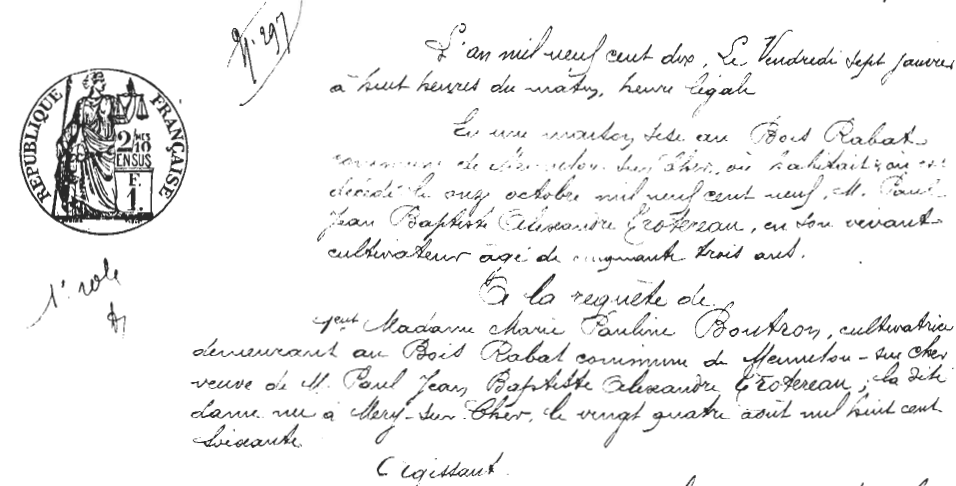 N. 297
L'an mil neuf cent dix, Le Vendredi sept janvier
à huit heures du matin, heure légale
En une maison sise au Bois Rabat
commune de Mennetou sur Cher, où habitait & où est
décédé le onze octobre mil neuf cent neuf, M. Paul
Jean Baptiste Alexandre Trotereau, en son vivant
cultivateur âgé de cinquante trois ans.
RÉPUBLIQUE FRANÇAISE
2/10
EN SUS
F.
1.
1er role
A la requête de
1ent Madame Marie Pauline Boutron, cultivatrice
demeurant au Bois Rabat commune de Mennetou-sur Cher
veuve de M. Paul Jean Baptiste Alexandre Trotereau; la dite
dame née à Mery-sur Cher, le vingt quatre août mil huit cent
soixante
Agissant